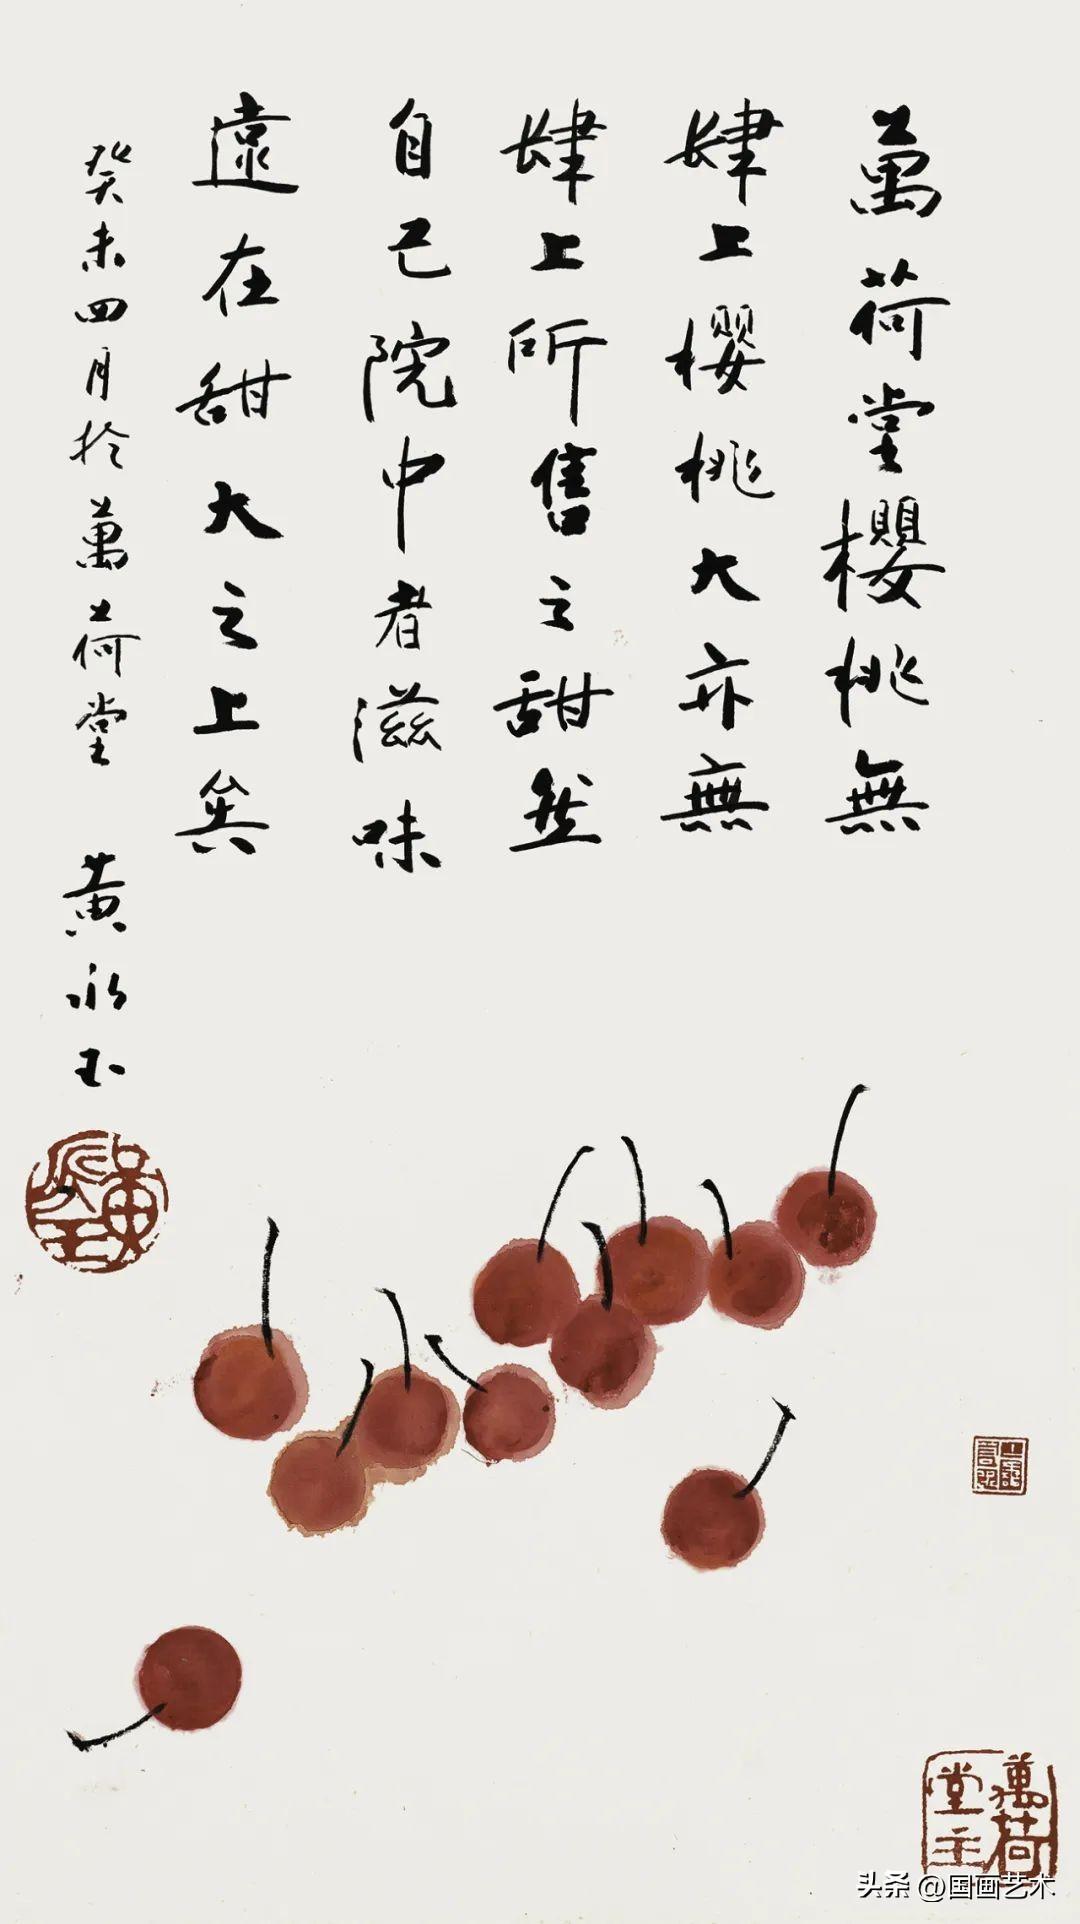 萬荷堂櫻桃無
肆上櫻桃大亦無
肆上所售之甜然
自己院中者滋味
遠在甜大之上矣
癸未四月於萬荷堂 黃永玉
黃永玉
萬荷堂主
头条 @国画艺术